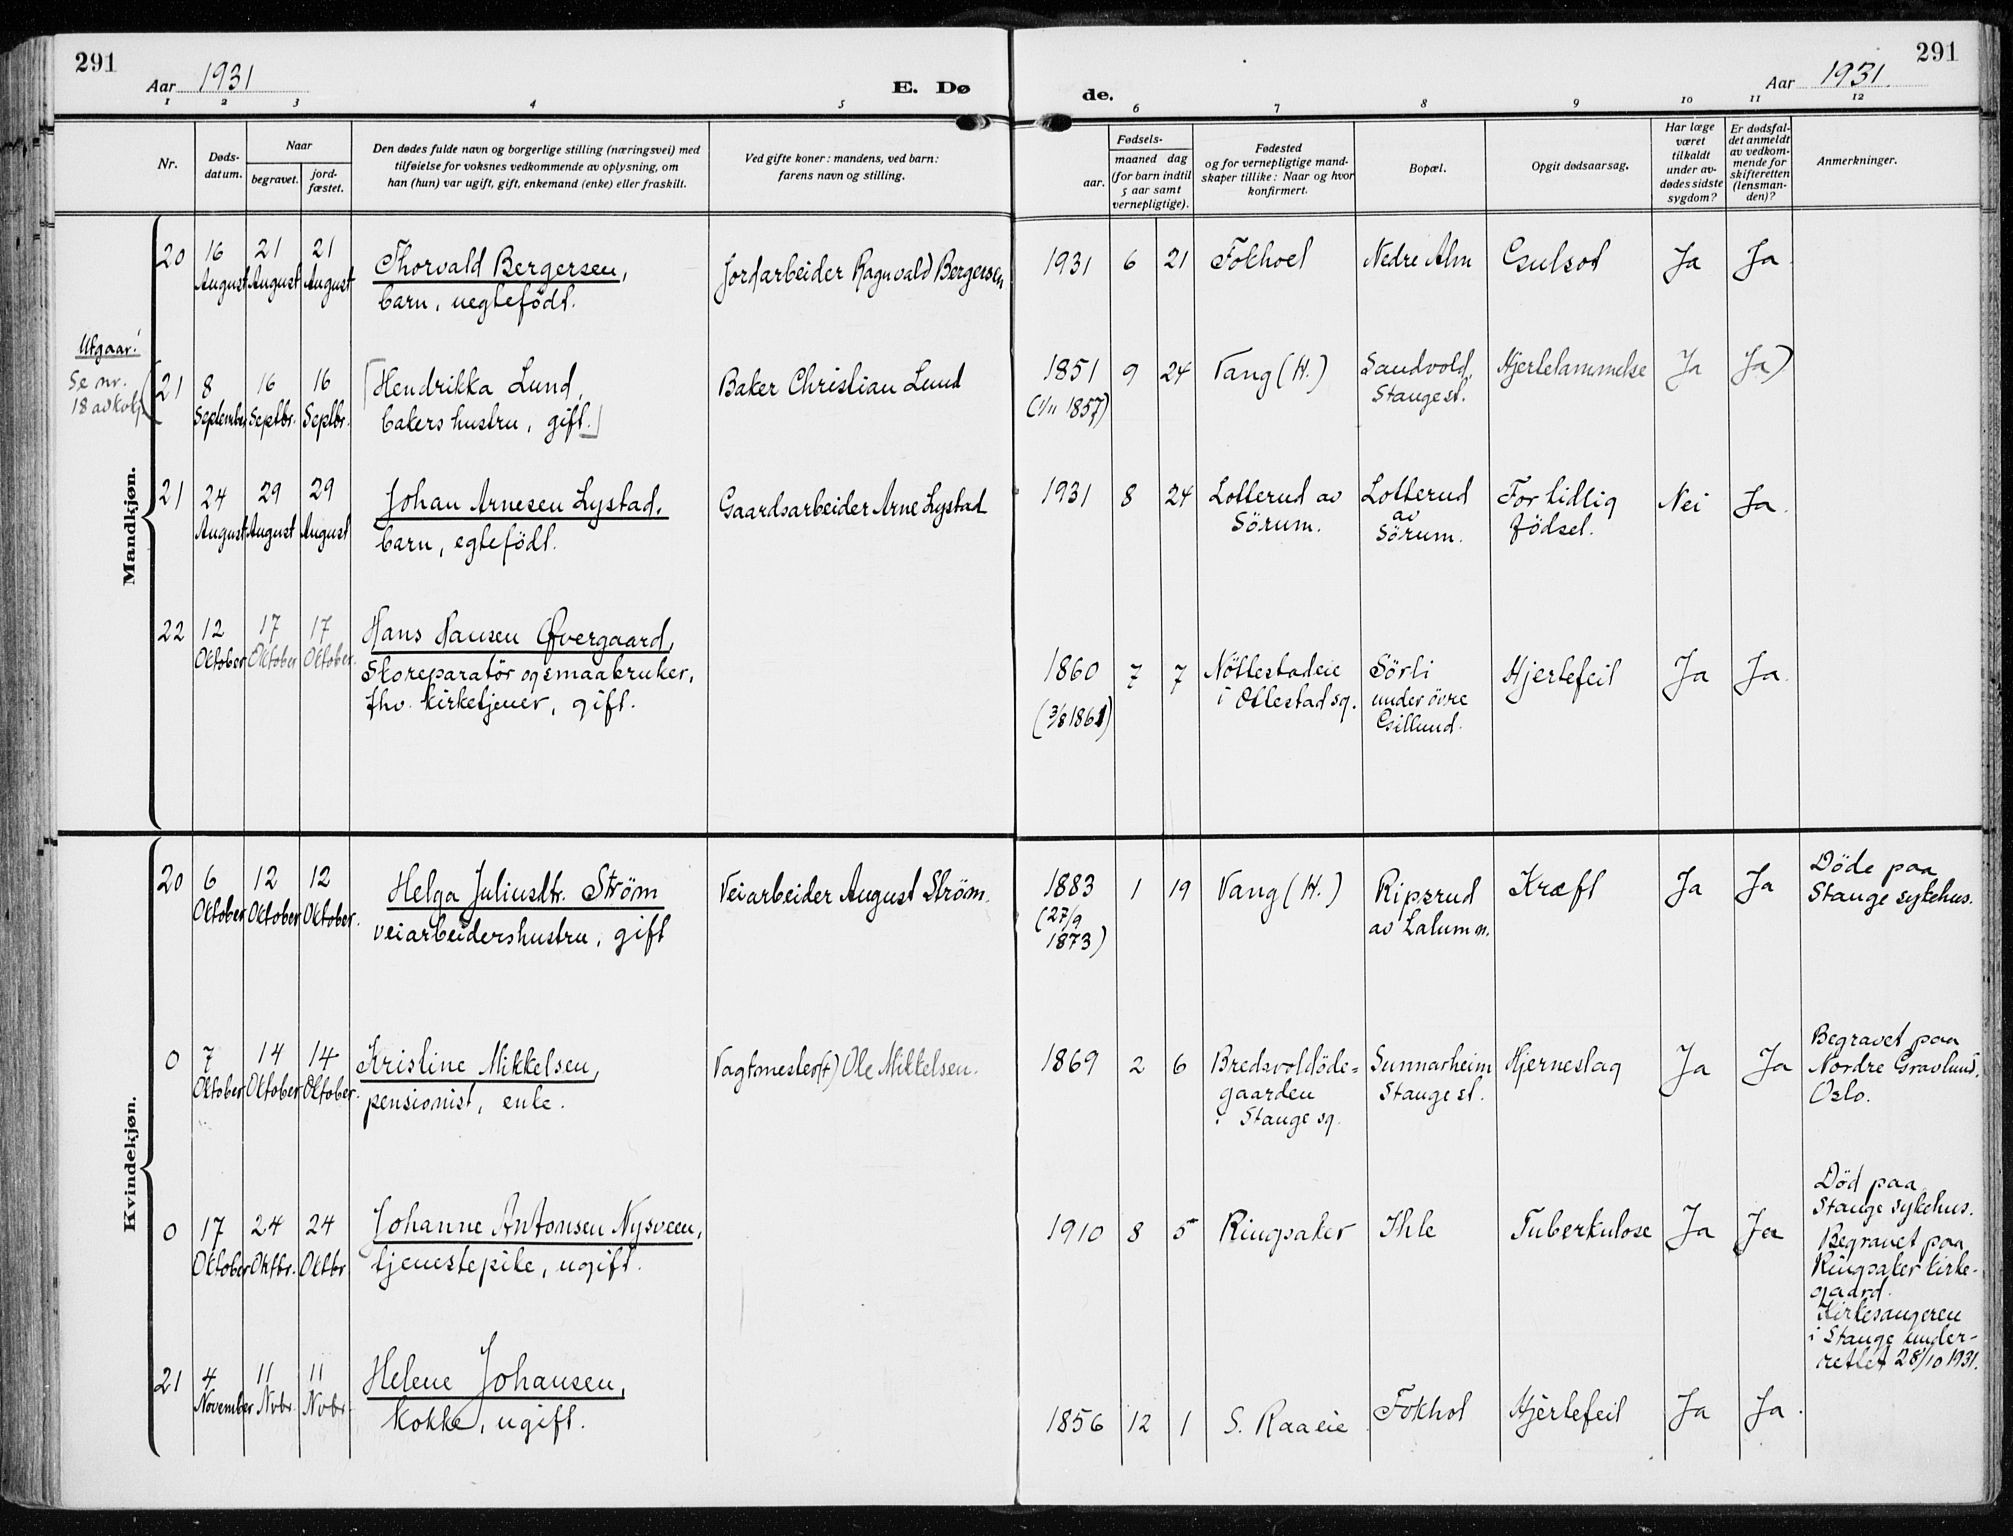 291
Aar 1931
E. Dø
de.
Aar 1931.
291
1 2 3 4 5 6 7 8 9 10 11 12
Nr.
Døds-
datum.
Naar
begravet.
jord-
fæstet.
Den dødes fulde navn og borgerlige stilling (næringsvei) med
tilføielse for voksnes vedkommende av oplysning, om
han (hun) var ugift, gift, enkemand (enke) eller fraskilt.
Ved gifte koner: mandens, ved barn:
farens navn og stilling.
Fødsels-
aar.
maaned dag
(for barn indtil
5 aar samt
vernepligtige).
Fødested
og for vernepligtige mand-
skaper tillike: Naar og hvor
konfirmert.
Bopæl.
Opgit dødsaarsag.
Har læge
været
tilkaldt
under av-
dødes sidste
sygdom?
Er dødsfal-
det anmeldt
av vedkom-
mende for
skifteretten
(lensman-
den)?
Anmerkninger.
Mandkjøn.
20 16 21 21 Thorvald Bergersen, Jordarbeider Ragnvald Bergersen 1931 6 21 Fokhol Nedre Alm Gulsot Ja Ja.
August August August barn, uegtefödt.
Utgaar!
Se nr.
18 av kvkj.
(21 8 16 16 [Hendrikka Lund, Baker Christian Lund 1851 9 24 Vang (H.) Sandvold, Hjertelammelse Ja Ja)
September Septbr. Septbr. bakers hustru, gift.] (1/11 1857) Stange st.
21 24 29 29 Johan Arnesen Lystad, Gaardsarbeider Arne Lystad 1931 8 24 Lotterud av Lotterud For tidlig Nei Ja.
August August August barn, egtefödt. Sörum. av Sörum. födsel.
22 12 17 17 Hans Hansen Øvergaard,
Oktober Oktober Oktober. Skoreparatör og smaabruker, 1860 7 7 Nöttestadeie Sörli Hjertefeil Ja Ja.
fhv. kirketjener, gift. (3/8 1861) i Ottestad sg. under övre
Gillund.
Kvindekjøn.
20 6 12 12 Helga Juliusdtr. Ström Veiarbeider August Ström. 1883 1 19 Vang (H.) Ripsrud Kræft Ja Ja Döde paa
Oktober Oktober Oktober. veiarbeidershustru, gift (27/9 1873) av Lalum n. Stange sykehus.
0 7 14 14 Kristine Mikkelsen, Vagtmester (+) Ole Mikkelsen. 1869 2 6 Bredsvoldöde= Sunnarheim Hjerneslag Ja Ja Begravet paa
Oktober Oktober Oktober. pensionist, enke. gaarden Stange st. Nordre Gravlund,
i Stange sg. Oslo.
0 17 24 24 Johanne Antonsen Nysveen, 1910 8 5 Ringsaker Ihle Tuberkulose Ja Ja Död paa
Oktober Oktbr. Oktbr tjenestepike, ugift. Stange sykehus.
Begravet paa
Ringsaker kirke-
gaard.
Kirkesangeren
i Stange under-
rettet 28/10 1931.
21 4 11 11 Helene Johansen,
November Nvbr. Nvbr. kokke, ugift. 1856 12 1 S. Raaeie Fokhol Hjertefeil Ja Ja.